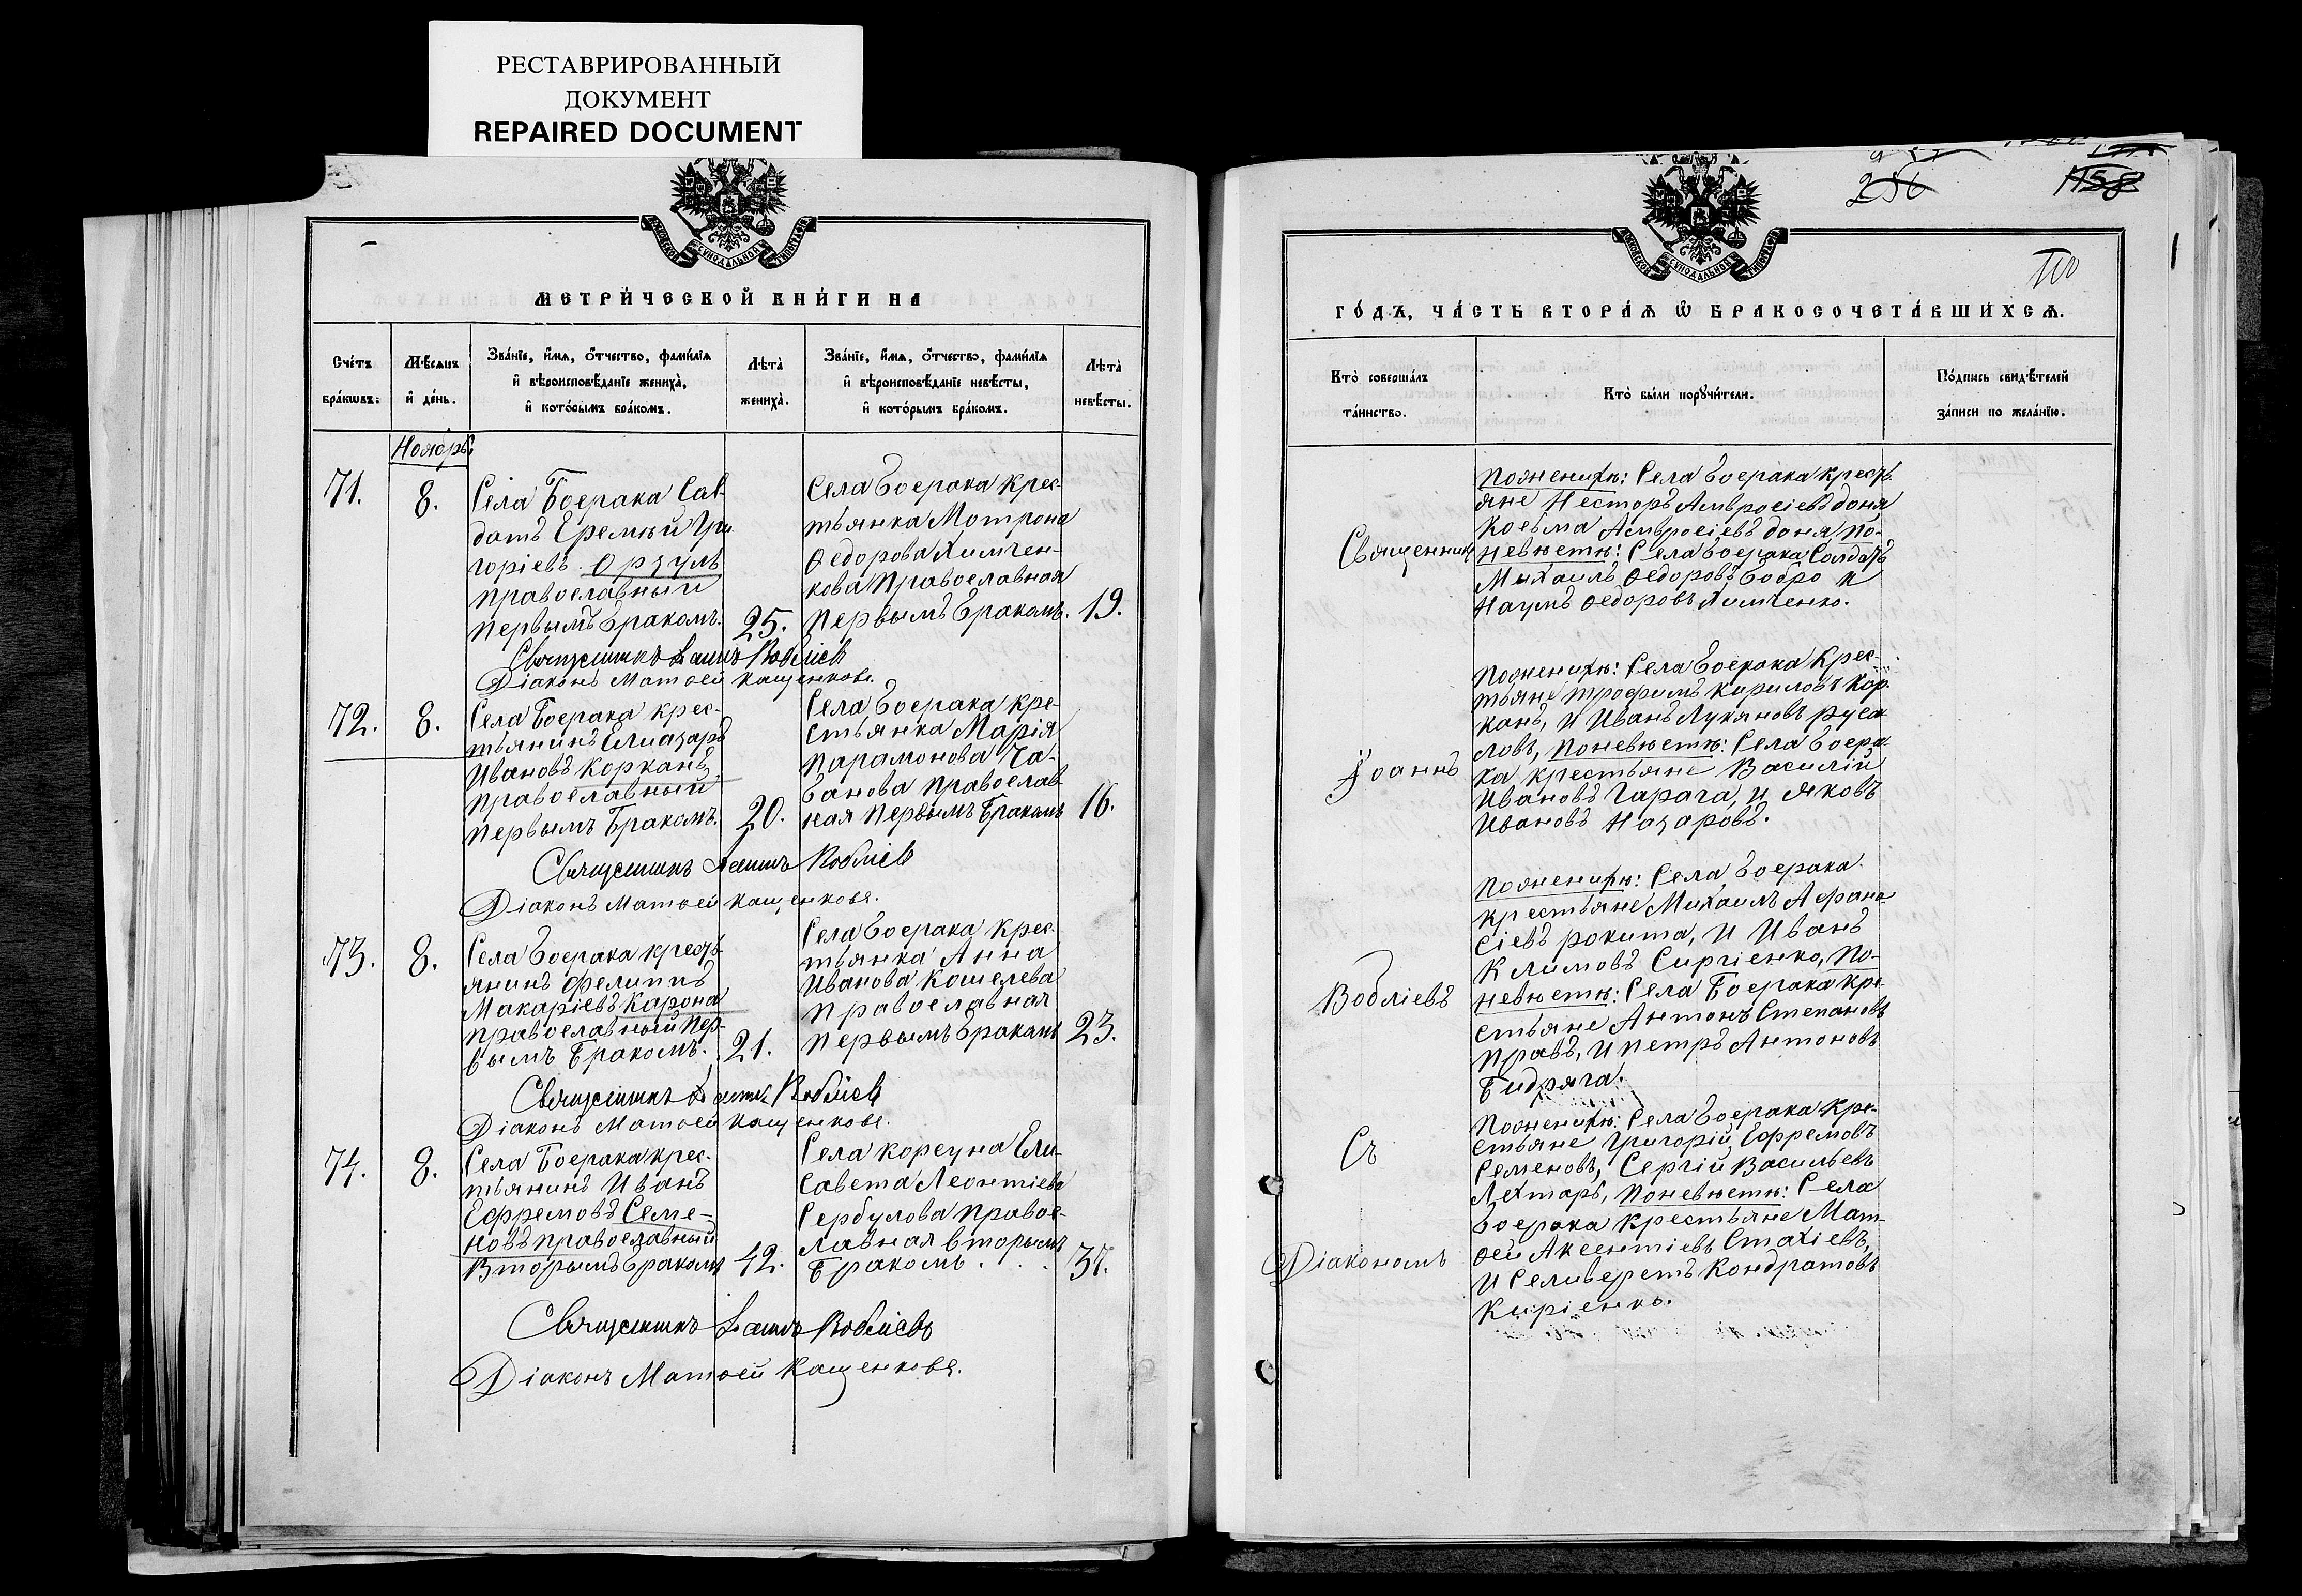 РЕСТАВРИРОВАННЫЙ
ДОКУМЕНТ
REPAIRED DOCUMENT
МОСКОВСКОЙ СѴНОДАЛЬНОЙ ТИПОГРАФІИ
МЕТРИ́ЧЕСКОЙ КНИ́ГИ НА
Сче́тъ
бра́кѡвъ.
Мѣ́сѧцъ
и҆ де́нь.
Зва́нїе, и҆́мѧ, ѻ҆́тчество, фами́лїѧ
и҆ вѣроисповѣ́данїе жениха̀,
и҆ кото́рымъ бра́комъ.
Лѣта̀
жениха̀.
Зва́нїе, и҆́мѧ, ѻ҆́тчество, фами́лїѧ
и҆ вѣроисповѣ́данїе невѣ́сты,
и҆ кото́рымъ бра́комъ.
Лѣта̀
невѣ́сты.
Ноябрь
71.
8.
Села Боерака Сал-
датъ Еремѣй Гри
горіевъ Орзулъ
православный
первымъ бракомъ.
25.
Села Боерака крес-
тьянка Мотрона
Ѳедорова Химчен-
кова Православная
Первымъ Бракомъ.
19.
Священникъ Іоаннъ Вобліевъ
Діаконъ Матѳей Кащенковъ.
72.
8.
Села Боерака крес-
тьянинъ Елиазаръ
Ивановъ Корканъ
православный
первымъ Бракомъ.
20.
Села Боерака кре-
стьянка Марія
Парамонова Ча-
банова Православ-
ная Первымъ Бракомъ
16.
Священникъ Іоаннъ Вобліевъ
Діаконъ Матѳей Кащенковъ.
73.
8.
Села Боерака кресть
янинъ Филиппъ
Макаріевъ Карона
православный Пер-
вымъ Бракомъ.
21.
Села Боерака крес-
тьянка Анна
Иванова Кошелева
Православная
Первымъ Бракомъ
23.
Священникъ Іоаннъ Вобліевъ
Діаконъ Матѳей Кащенковъ.
74.
8.
Села Боерака крес-
тьянинъ Иванъ
Ефремовъ Семе-
новъ православный
Вторымъ Бракомъ
42.
Села Корсуна Ели-
савета Леонтіева
Сербулова Правос-
лавная вторымъ
Бракомъ.
37.
Священникъ Іоаннъ Вобліевъ
Діаконъ Матѳей Кащенковъ.
256
1158
МОСКОВСКОЙ СѴНОДАЛЬНОЙ ТИПОГРАФІИ
ГО́ДЪ, ЧА́СТЬ ВТОРА́Ѧ Ѡ҆ БРАКОСОЧЕТА́ВШИХСѦ.
Кто̀ соверша́лъ
та́инство.
Кто̀ бы́ли порꙋчи́тели.
По́дпись свидѣ́телей
за́писи по жела́нїю.
Священникъ
Іоаннъ
Вобліевъ
Съ
Діакономъ
Поженихѣ: Села Боерака кресть
яне Несторъ Амвросіевъ Доня
Косьма Амвросіевъ Доня По-
невѣстѣ: Села Боерака Салдатъ
Михаилъ Ѳедоровъ Бобро и
Наумъ Ѳедоровъ Химченко.
Поженихѣ: Села Боерака Крес-
тьяне Трофимъ Кириловъ Кор-
канъ, и Иванъ Лукяновъ Руса
ловъ, Поневѣстѣ: Села Боера-
ка крестьяне Василій
Ивановъ Чарача, и Яковъ
Ивановъ Назаровъ.
Поженихѣ: Села Боерака
крестьяне Михаилъ Афана
сіевъ Рокита, и Иванъ
Климовъ Сиргіенко, По-
невѣстѣ: Села Боерака кре
стьяне Антонъ Степановъ
Правъ, и Петръ Антоновъ
Бидряга.
Поженихѣ: Села Боерака Кре-
стьяне Григорій Ефремовъ
Семеновъ, Сергій Васильевъ
Лехтарь, Поневѣстѣ: Села
Боерака Крестьяне Мат-
ѳей Аксентіевъ Стахіевъ,
и Селиверстъ Кондратовъ
Киріенко.